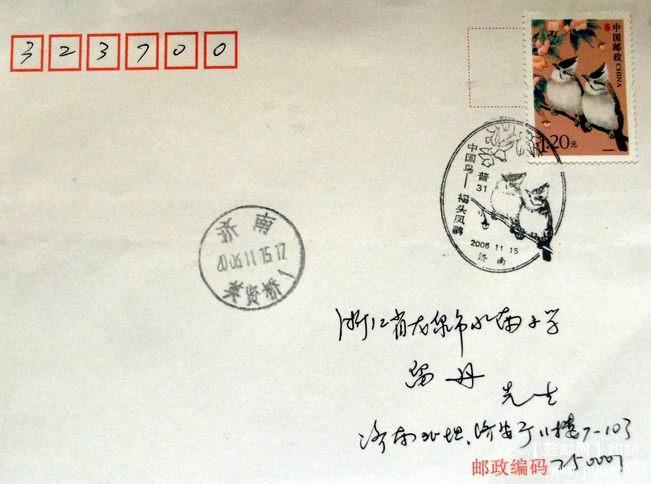 323700
中国邮政 CHINA
1.20元
中国鸟—褐头凤鹛
普31
2006.11.15
济南
济南
2006.11.15.17
浙江省龙泉市水南小学
留 丹
先生
济南北坦
7-103
邮政编码 250001